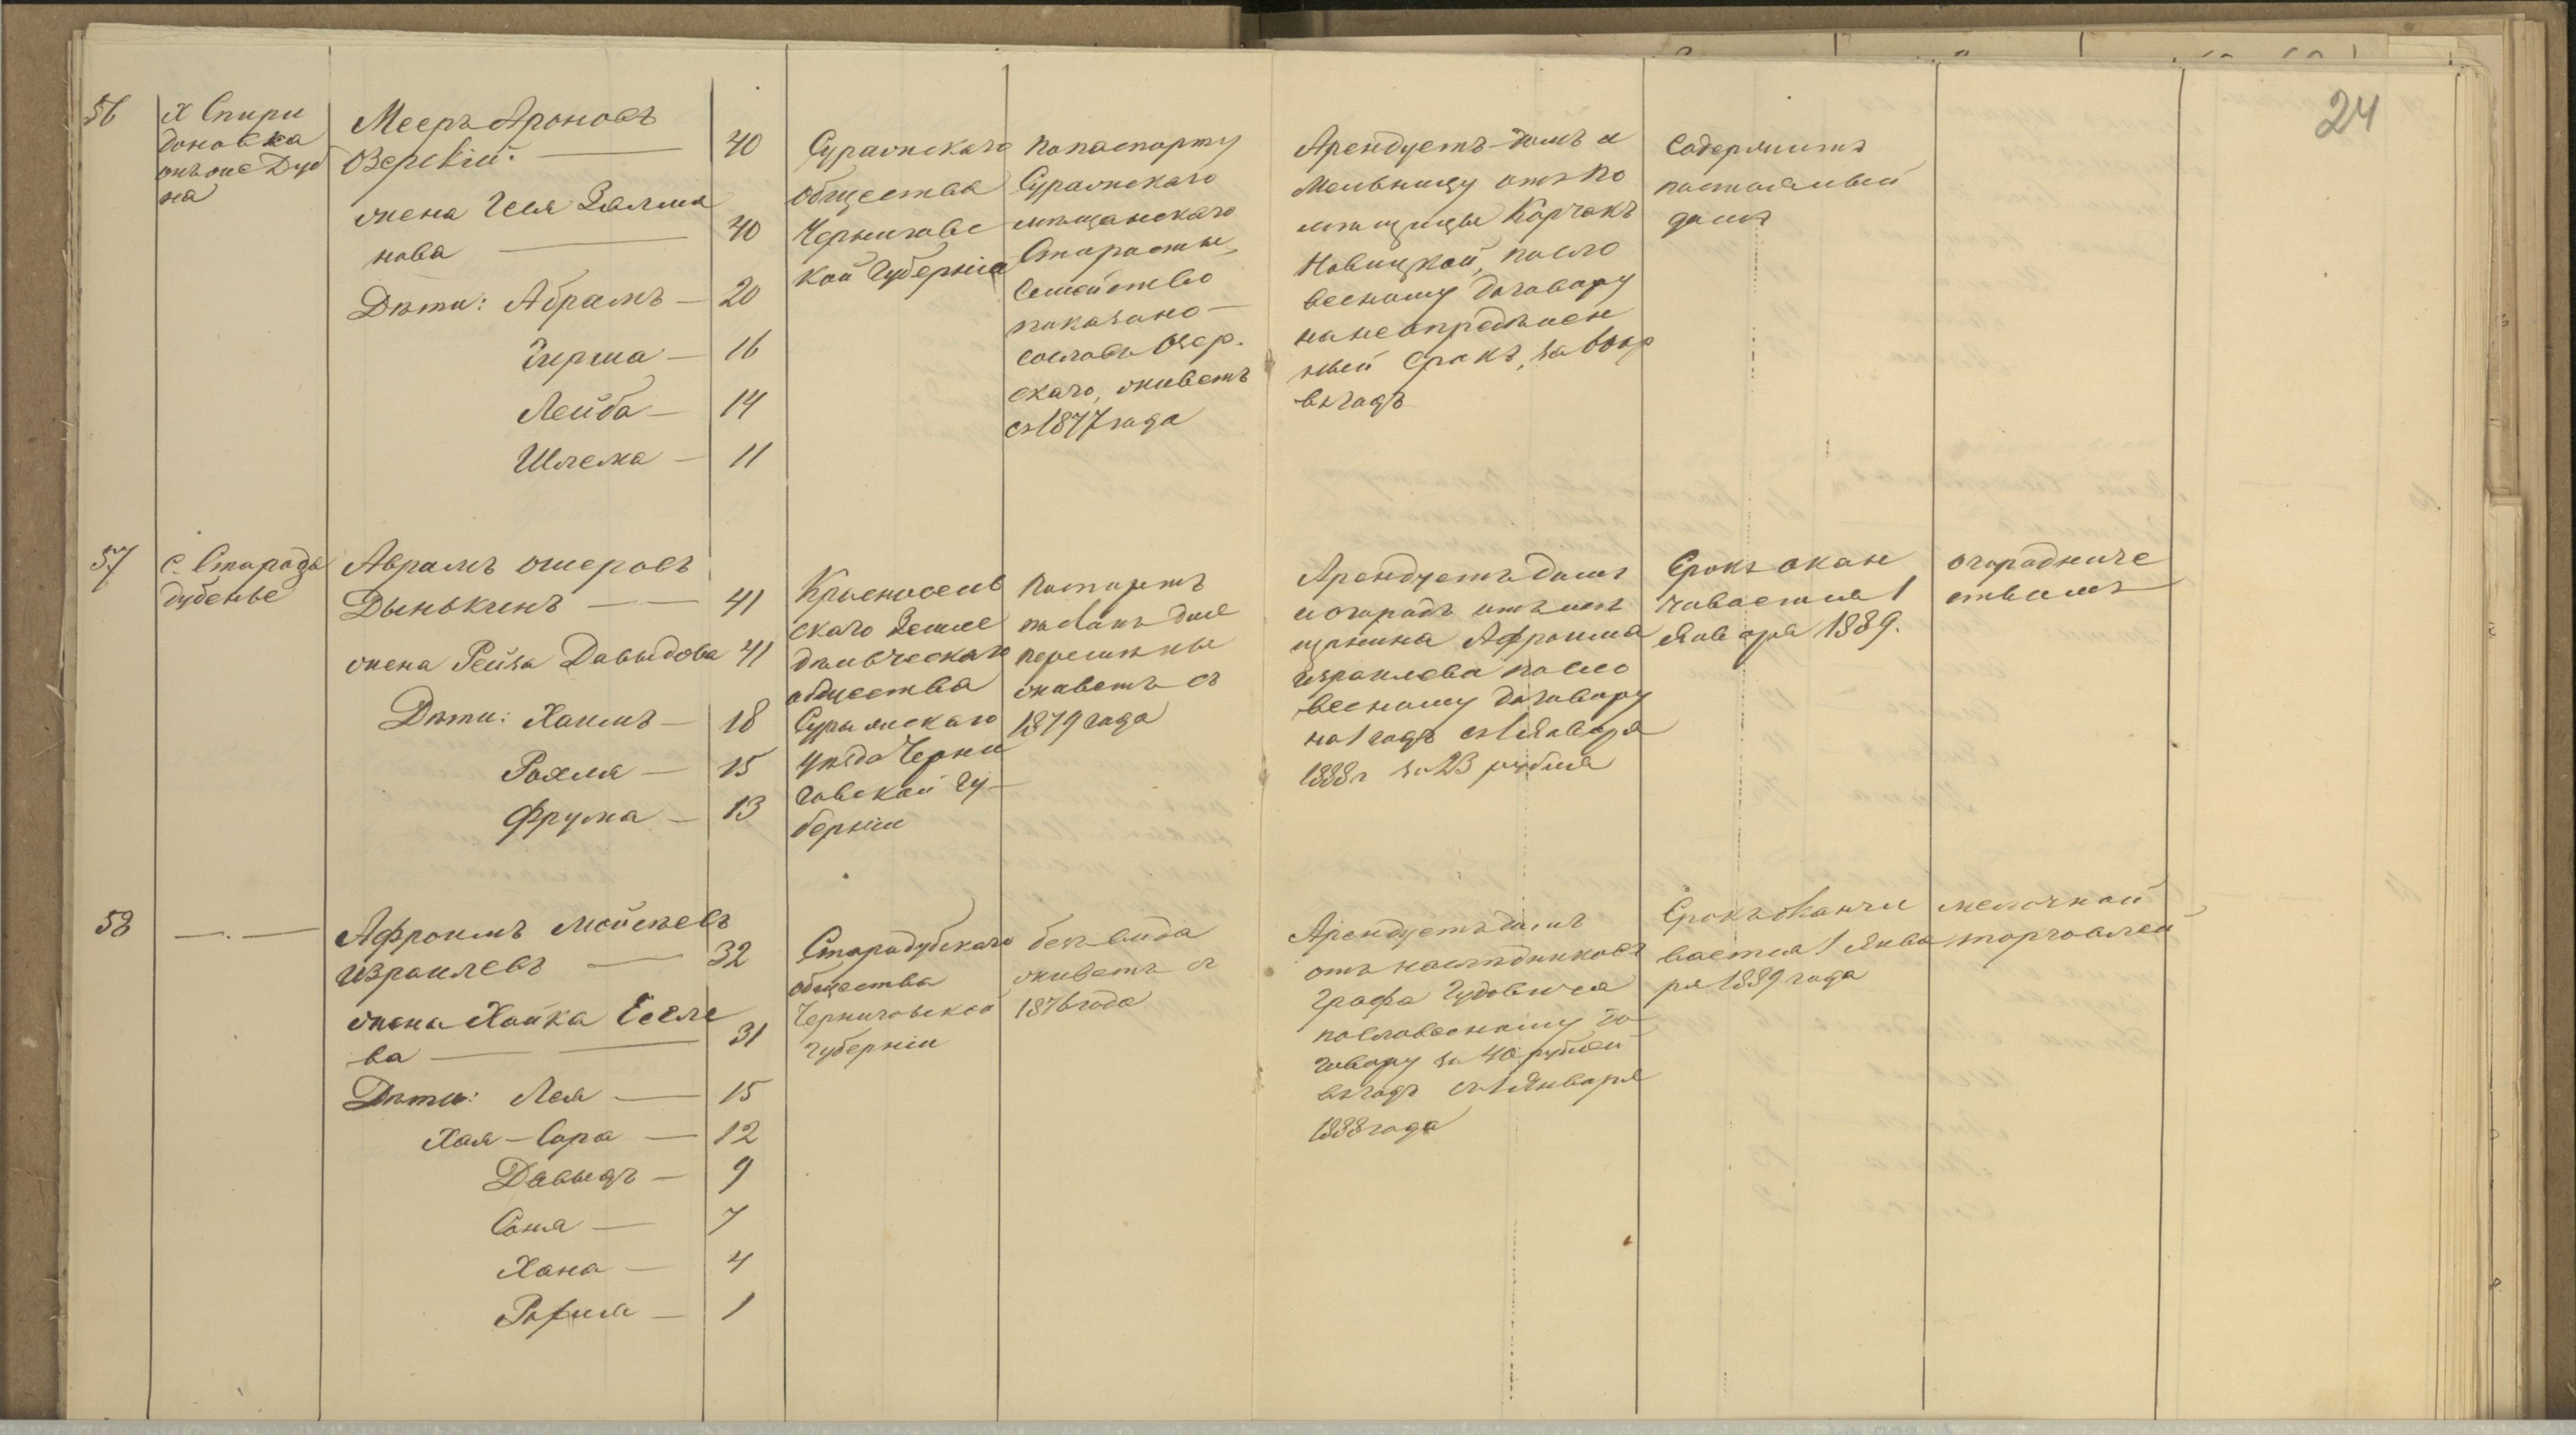 24
56
х Спири
доновка
онъ же Дуб
на
Мееръ Ароновъ
Озерскій. — 40
жена Геся Залма
нова — 40
Дѣти: Абрамъ — 20
Гирша — 16
Лейба — 14
Шлема — 11
Суражскаго
общества
Чернигове
кой Губерніи
По паспорту
Суражскаго
мѣщанскаго
Старосты,
Семейство
показано —
со словъ Озер.
скаго, живетъ
съ 1877 года
Арендуетъ домъ и
мельницу отъ по
мѣщицы Корчакъ
Новицкой, по сло
весному договору
на неопредѣлен
ный срокъ, за 600 р
въ годъ
Содержитъ
постоялый
домъ
57
с. Стародъ
дубенье
Аврамъ Ошеровъ
Дынькинъ — 41
жена Рейза Давыдова 41
Дѣти: Хаимъ — 18
Рохля — 15
Фрума — 13
Красносель
скаго Земле
дѣльческаго
общества
Суражскаго
уѣзда Черни
говской Гу-
берніи
Паспортъ
посланъ для
перемѣны
живетъ съ
1879 года
Арендуетъ домъ
и огородъ отъ мѣ
щанина Афроима
Израилева по сло
весному договору
на 1 годъ съ 1 Января
1888 г за 23 рубля
Срокъ окан
чивается 1
Января 1889.
огородниче
ствомъ
58
—.—
Афроимъ Мойсеевъ
Израилевъ — 32
жена Хайка Еселе
ва — 31
Дѣти: Лея — 15
Хая-Сора — 12
Давыдъ — 9
Соня — 7
Хана — 4
— 1
Стародубскаго
общества
Черниговской
губерніи
безъ вида
живетъ съ
1876 года
Арендуетъ домъ
отъ наслѣдниковъ
Графа Гудовича
по словесному до
говору за 40 рублей
въ годъ съ 1 Января
1888 года
Срокъ оканчи
вается 1 Янва
ря 1889 года
мелочной
торговлей